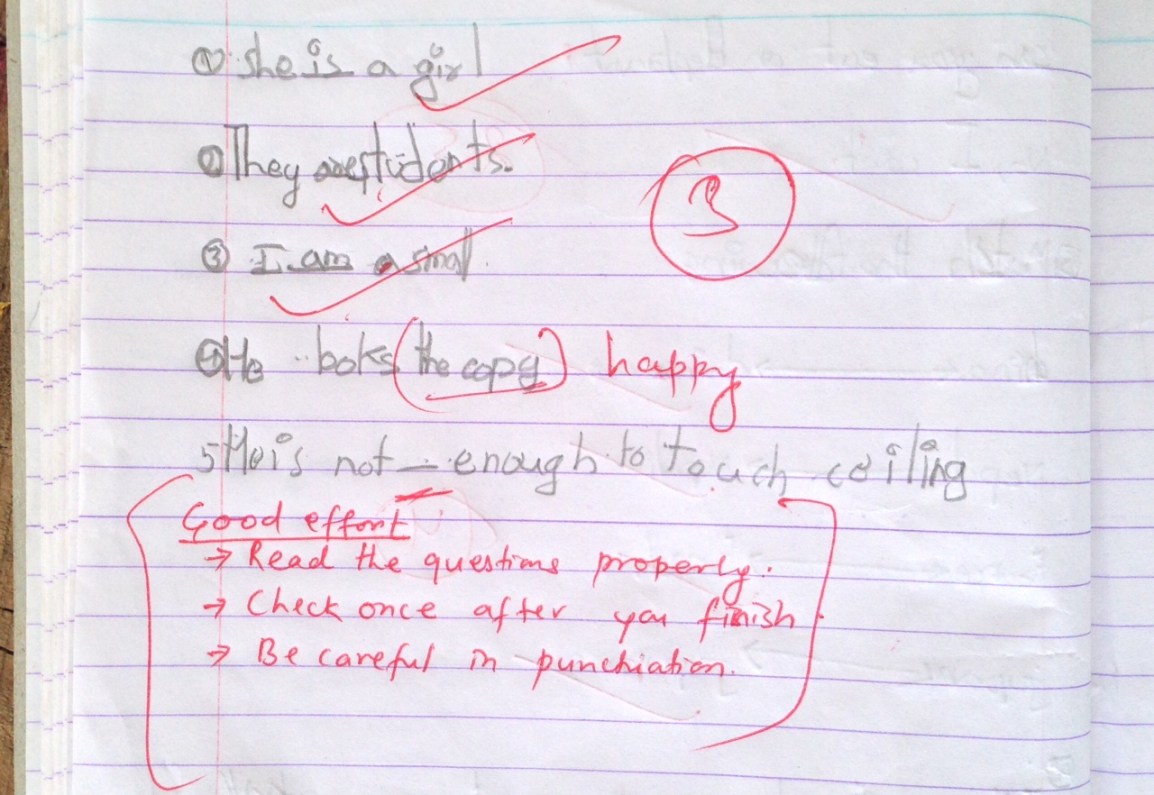 ① she is a girl
② They are students.
③ I am a small.
3
④ He boks (the copy) happy
5 He is not - enough to touch ceiling
Good effort
→ Read the questions properly.
→ Check once after you finish.
→ Be careful in punchiation.